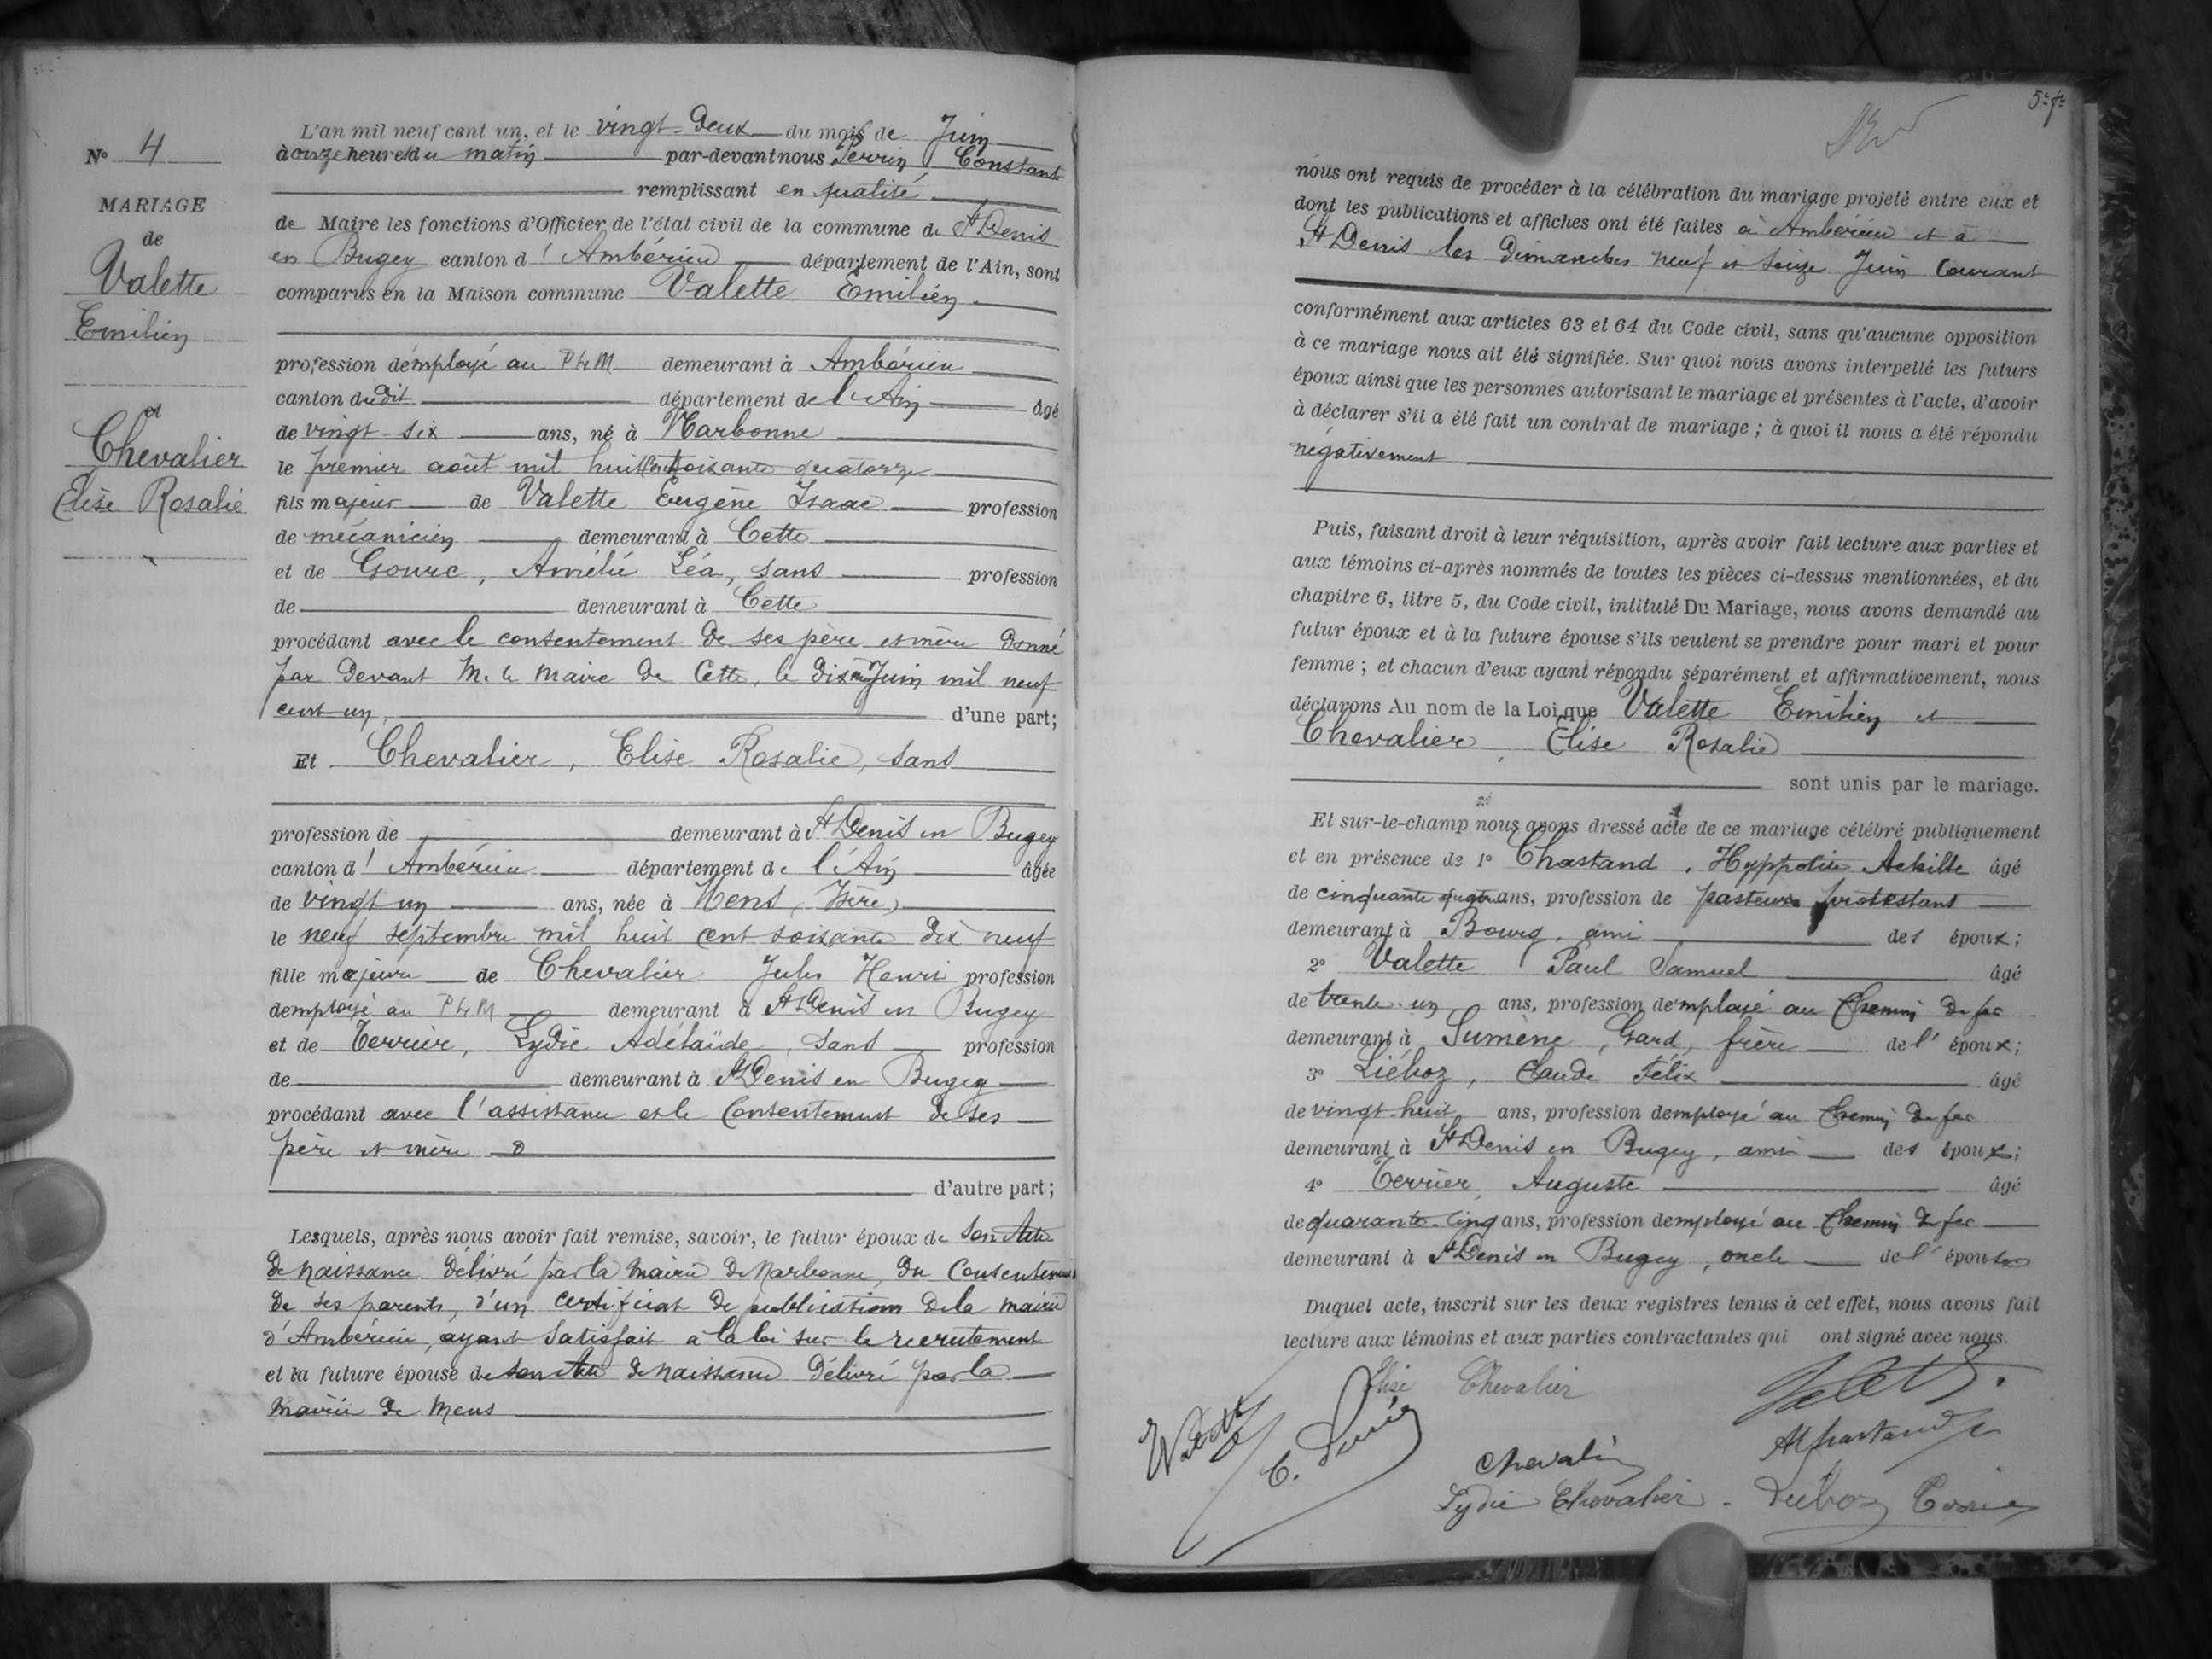 N° 4
MARIAGE
de
Valette
Emilien
et
Chevalier
Elise Rosalie
L'an mil neuf cent un, et le vingt-deux du mois de Juin
à onze heures du matin par-devant nous Perrin Constant
remplissant en qualité
de Maire les fonctions d'Officier de l'état civil de la commune de St Denis
en Bugey canton d'Ambérieu département de l'Ain, sont
comparus en la Maison commune Valette Emilien
profession d'employé au PLM demeurant à Ambérieu
canton dudit département de l'Ain âgé
de vingt-six ans, né à Narbonne
le premier août mil huit cent soixante quatorze
fils majeur de Valette Eugène Isaac profession
de mécanicien demeurant à Cette
et de Gourc, Amélie Léa, sans profession
de demeurant à Cette
procédant avec le consentement de ses père et mère donné
par devant M. le Maire de Cette, le dix Juin mil neuf
cent un, d'une part;
Et Chevalier, Elise Rosalie, sans
profession de demeurant à St Denis en Bugey
canton d'Ambérieu département de l'Ain âgée
de vingt un ans, née à Mens (Isère)
le neuf septembre mil huit cent soixante dix neuf
fille majeure de Chevalier Jules Henri profession
d'employé au PLM demeurant à St Denis en Bugey
et de Terrier, Lydie Adélaïde, sans profession
de demeurant à St Denis en Bugey
procédant avec l'assistance et le consentement de ses
père et mère
d'autre part;
Lesquels, après nous avoir fait remise, savoir, le futur époux de son acte
de naissance délivré par la mairie de Narbonne, du consentement
de ses parents, d'un certificat de publications de la mairie
d'Ambérieu, ayant satisfait à la loi sur le recrutement
et la future épouse de son acte de naissance délivré par la
mairie de Mens
5e f
nous ont requis de procéder à la célébration du mariage projeté entre eux et
dont les publications et affiches ont été faites à Ambérieu et à
St Denis les dimanches neuf et seize Juin courant
conformément aux articles 63 et 64 du Code civil, sans qu'aucune opposition
à ce mariage nous ait été signifiée. Sur quoi nous avons interpellé les futurs
époux ainsi que les personnes autorisant le mariage et présentes à l'acte, d'avoir
à déclarer s'il a été fait un contrat de mariage ; à quoi il nous a été répondu
négativement
Puis, faisant droit à leur réquisition, après avoir fait lecture aux parties et
aux témoins ci-après nommés de toutes les pièces ci-dessus mentionnées, et du
chapitre 6, titre 5, du Code civil, intitulé Du Mariage, nous avons demandé au
futur époux et à la future épouse s'ils veulent se prendre pour mari et pour
femme ; et chacun d'eux ayant répondu séparément et affirmativement, nous
déclarons Au nom de la Loi que Valette Emilien et
Chevalier, Elise Rosalie
sont unis par le mariage.
Et sur-le-champ nous avons dressé acte de ce mariage célébré publiquement
et en présence de 1° Chastand, Hyppolite Achille âgé
de cinquante quatre ans, profession de pasteur protestant
demeurant à Bourg, ami des époux;
2° Valette Paul Samuel âgé
de trente-un ans, profession d'employé au Chemin de fer
demeurant à Sumène, Gard, frère de l'époux;
3° Liéboz, Claude Félix âgé
de vingt huit ans, profession d'employé au Chemin de fer
demeurant à St Denis en Bugey, ami des époux;
4° Terrier, Auguste âgé
de quarante-cinq ans, profession d'employé au Chemin de fer
demeurant à St Denis en Bugey, oncle de l'épouse
Duquel acte, inscrit sur les deux registres tenus à cet effet, nous avons fait
lecture aux témoins et aux parties contractantes qui ont signé avec nous.
Elise Chevalier
Valette
C. Perrin
Chevalier
Lydie Chevalier